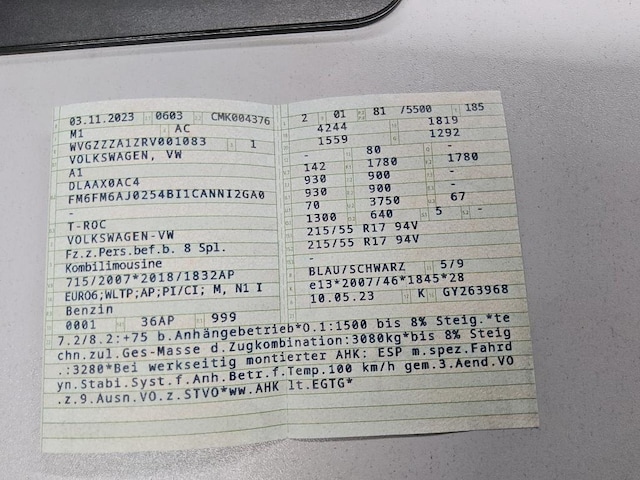 03.11.2023 0603 CMK004376
M1 AC
WVGZZZA1ZRV001083 1
VOLKSWAGEN, VW
A1
DLAAX0AC4
FM6FM6AJ0254BI1CANNI2GA0
-
T-ROC
VOLKSWAGEN-VW
Fz.z.Pers.bef.b. 8 Spl.
Kombilimousine
715/2007*2018/1832AP
EURO6;WLTP;AP;PI/CI; M, N1 I
Benzin
0001 36AP 999
2 01 81 /5500 185
4244 1819
1559 1292
- 80 -
142 1780 1780
930 900 -
930 900 -
70 3750 67
1300 640 5 -
215/55 R17 94V
215/55 R17 94V
-
BLAU/SCHWARZ 5/9
e13*2007/46*1845*28
10.05.23 K GY263968
7.2/8.2:+75 b.Anhängebetrieb*O.1:1500 bis 8% Steig.*te
chn.zul.Ges-Masse d.Zugkombination:3080kg*bis 8% Steig
.:3280*Bei werkseitig montierter AHK: ESP m.spez.Fahrd
yn.Stabi.Syst.f.Anh.Betr.f.Temp.100 km/h gem.3.Aend.VO
.z.9.Ausn.VO.z.STVO*ww.AHK lt.EGTG*